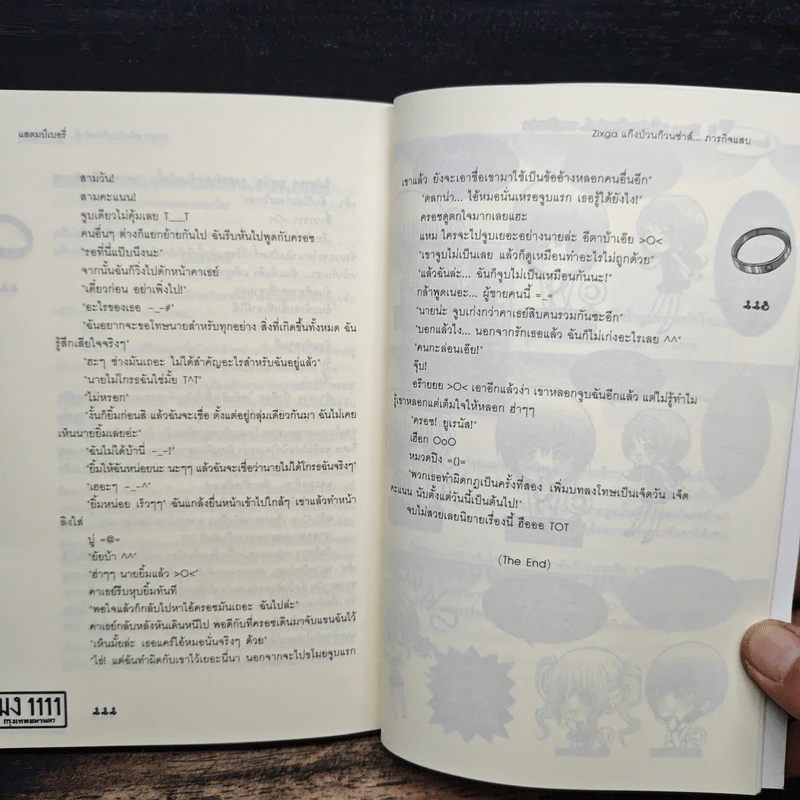 แสตมป์เบอรี่
สามวัน!
สามคะแนน!
จูบเดียวไม่คุ้มเลย T__T
คนอื่นๆ ต่างก็แยกย้ายกันไป ฉันรีบหันไปพูดกับครอซ
"รอที่นี่แป๊บนึงนะ"
จากนั้นฉันก็วิ่งไปดักหน้าคาเธย์
"เดี๋ยวก่อน อย่าเพิ่งไป!"
"อะไรของเธอ -_-#"
"ฉันอยากจะขอโทษนายสำหรับทุกอย่าง สิ่งที่เกิดขึ้นทั้งหมด ฉัน
รู้สึกเสียใจจริงๆ"
"ฮะๆ ช่างมันเถอะ ไม่ได้สำคัญอะไรสำหรับฉันอยู่แล้ว"
"นายไม่โกรธฉันใช่มั้ย T^T"
"ไม่หรอก"
"งั้นก็ยิ้มก่อนสิ แล้วฉันจะเชื่อ ตั้งแต่อยู่กลุ่มเดียวกันมา ฉันไม่เคย
เห็นนายยิ้มเลยอ่ะ"
"ฉันไม่ได้บ้านี่ -_-!"
"ยิ้มให้ฉันหน่อยนะ นะๆๆ แล้วฉันจะเชื่อว่านายไม่ได้โกรธฉันจริงๆ"
"เฮอะๆ -_-^"
"ยิ้มหน่อย เร็วๆๆ" ฉันแกล้งยื่นหน้าเข้าไปใกล้ๆ เขาแล้วทำหน้า
ลิงใส่
บู่ =@=
"ยัยบ้า ^^"
"ฮ่าๆๆ นายยิ้มแล้ว >O<"
คาเธย์รีบหุบยิ้มทันที
"พอใจแล้วก็กลับไปหาไอ้ครอซมันเถอะ ฉันไปล่ะ"
คาเธย์กลับหลังหันเดินหนีไป พอดีกับที่ครอซเดินมาจับแขนฉันไว้
"เห็นมั้ยล่ะ เธอแคร์ไอ้หมอนั่นจริงๆ ด้วย"
"ใช่! แต่ฉันทำผิดกับเขาไว้เยอะนี่นา นอกจากจะไปขโมยจูบแรก
มง 1111
กรุงเทพมหานคร
222
Zixga แก๊งป่วนก๊วนซ่าส์... ภารกิจแสบ
เขาแล้ว ยังจะเอาชื่อเขามาใช้เป็นข้ออ้างหลอกคนอื่นอีก"
"ตลกน่า... ไอ้หมอนั่นเหรอจูบแรก เธอรู้ได้ยังไง!"
ครอซดูตกใจมากเลยแฮะ
แหม ใครจะไปจูบเยอะอย่างนายล่ะ อีตาบ้าเอ๊ย >O<
"เขาจูบไม่เป็นเลย แล้วก็ดูเหมือนทำอะไรไม่ถูกด้วย"
"แล้วฉันล่ะ... ฉันก็จูบไม่เป็นเหมือนกันนะ!"
กล้าพูดเนอะ... ผู้ชายคนนี้ =_=
"นายน่ะ จูบเก่งกว่าคาเธย์สิบคนรวมกันซะอีก"
"บอกแล้วไง... นอกจากรักเธอแล้ว ฉันก็ไม่เก่งอะไรเลย ^^"
"คนกะล่อนเอ๊ย!"
จุ๊บ!
อร๊ายยย >O< เอาอีกแล้วง่า เขาหลอกจูบฉันอีกแล้ว แต่ไม่รู้ทำไม
รู้เขาหลอกแต่เต็มใจให้หลอก ฮ่าๆๆ
"ครอซ! ยูเรนัส!"
เฮือก OoO
หมวดปิง =()=
"พวกเธอทำผิดกฎเป็นครั้งที่สอง เพิ่มบทลงโทษเป็นเจ็ดวัน เจ็ด
คะแนน นับตั้งแต่วันนี้เป็นต้นไป!"
จบไม่สวยเลยนิยายเรื่องนี้ ฮือออ TOT
(The End)
223